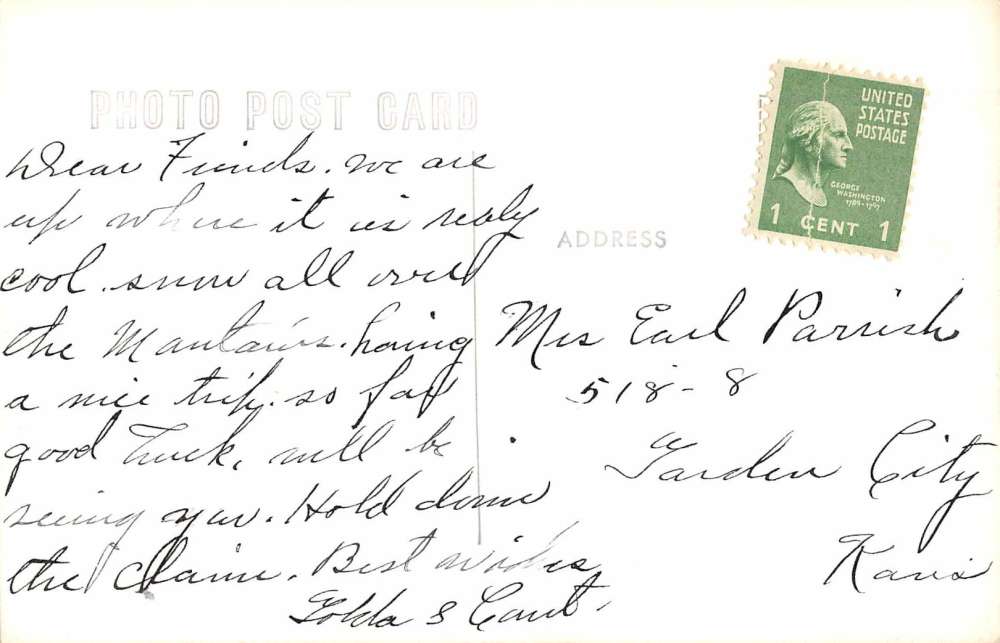 PHOTO POST CARD
Dear Friends. we are
up where it is realy
cool. snow all over
the Mantains. having
a nice trip. so far
good luck. will be
seeing you. Hold down
the claim. Best wishes
Golda &
UNITED
STATES
POSTAGE
GEORGE
WASHINGTON
1789-1797
1 CENT 1
ADDRESS
Mrs Earl Parrish
518-8
Garden City
Kans